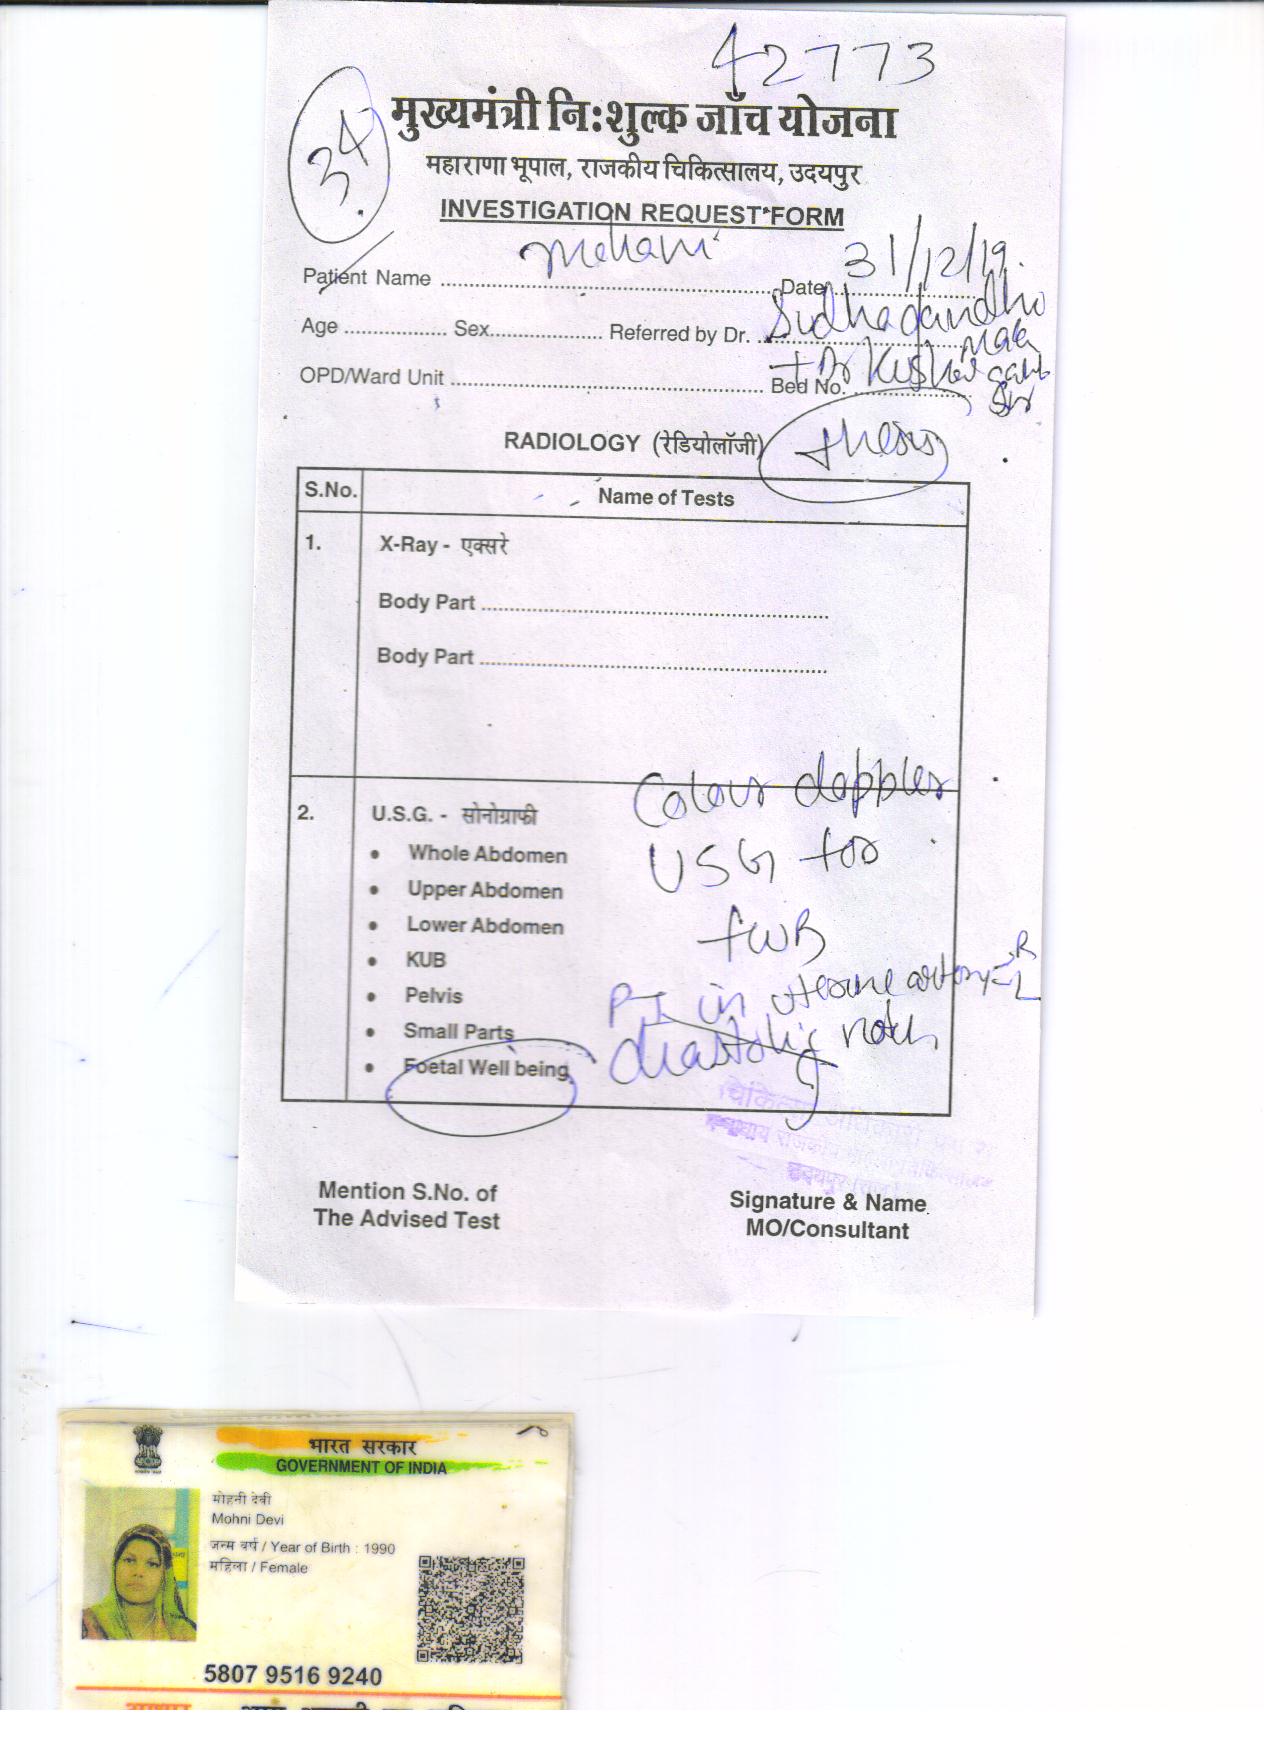 42773
34.
मुख्यमंत्री नि:शुल्क जाँच योजना
महाराणा भूपाल, राजकीय चिकित्सालय, उदयपुर
INVESTIGATION REQUEST FORM
Patient Name ........ Mohani Date ........ 31/12/19.
Age ........ Sex ........ Referred by Dr. ........ Sudha Gandhi
Mam
OPD/Ward Unit ........ Bed No. ........ + Dr
Sir
RADIOLOGY (रेडियोलॉजी) thesis
S.No. Name of Tests
1. X-Ray - एक्सरे
Body Part ........
Body Part ........
Colour doppler
2. U.S.G. - सोनोग्राफी
• Whole Abdomen USG for
• Upper Abdomen
• Lower Abdomen FWB
• KUB
• Pelvis PI in uterine artery = R L
• Small Parts diastolic notch
• Foetal Well being
चिकित्सा अधिकारी
उदयपुर (राज.)
Mention S.No. of
The Advised Test
Signature & Name
MO/Consultant
भारत सरकार
GOVERNMENT OF INDIA
मोहनी देवी
Mohni Devi
जन्म वर्ष / Year of Birth : 1990
महिला / Female
5807 9516 9240